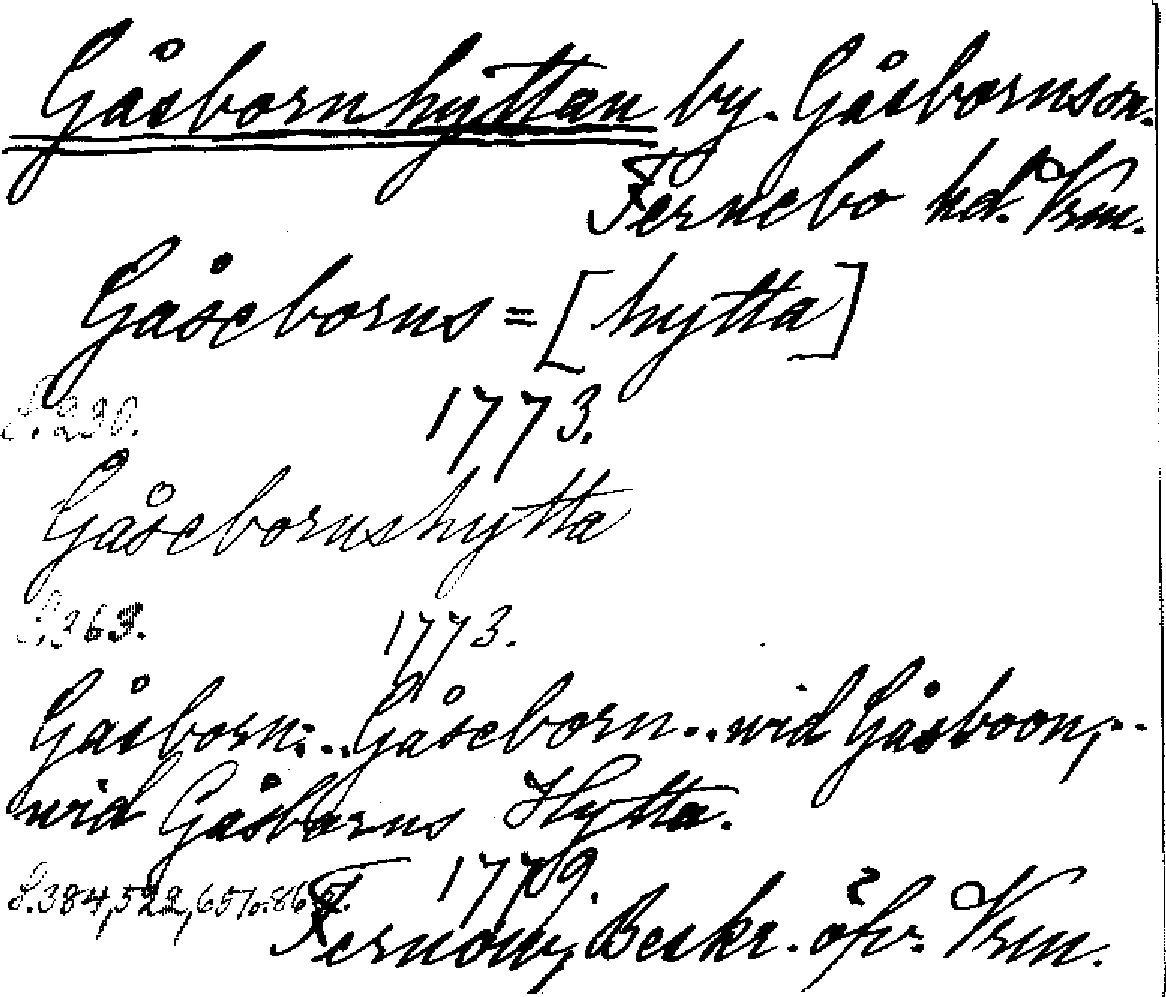 Gåsbornhyttan by. Gåsbornssn.
Fernebo hd. Vrm.
Gåseborns = [hytta]
S. 230. 1773.
Gåsebornshytta
S. 363. 1773.
Gåsborn: .. Gåseborn .. wid Gåsboon, ..
wid Gåsborns Hytta.
S. 384, 522, 651 1779.
Fernow, Beskr. öfv. Vrm.